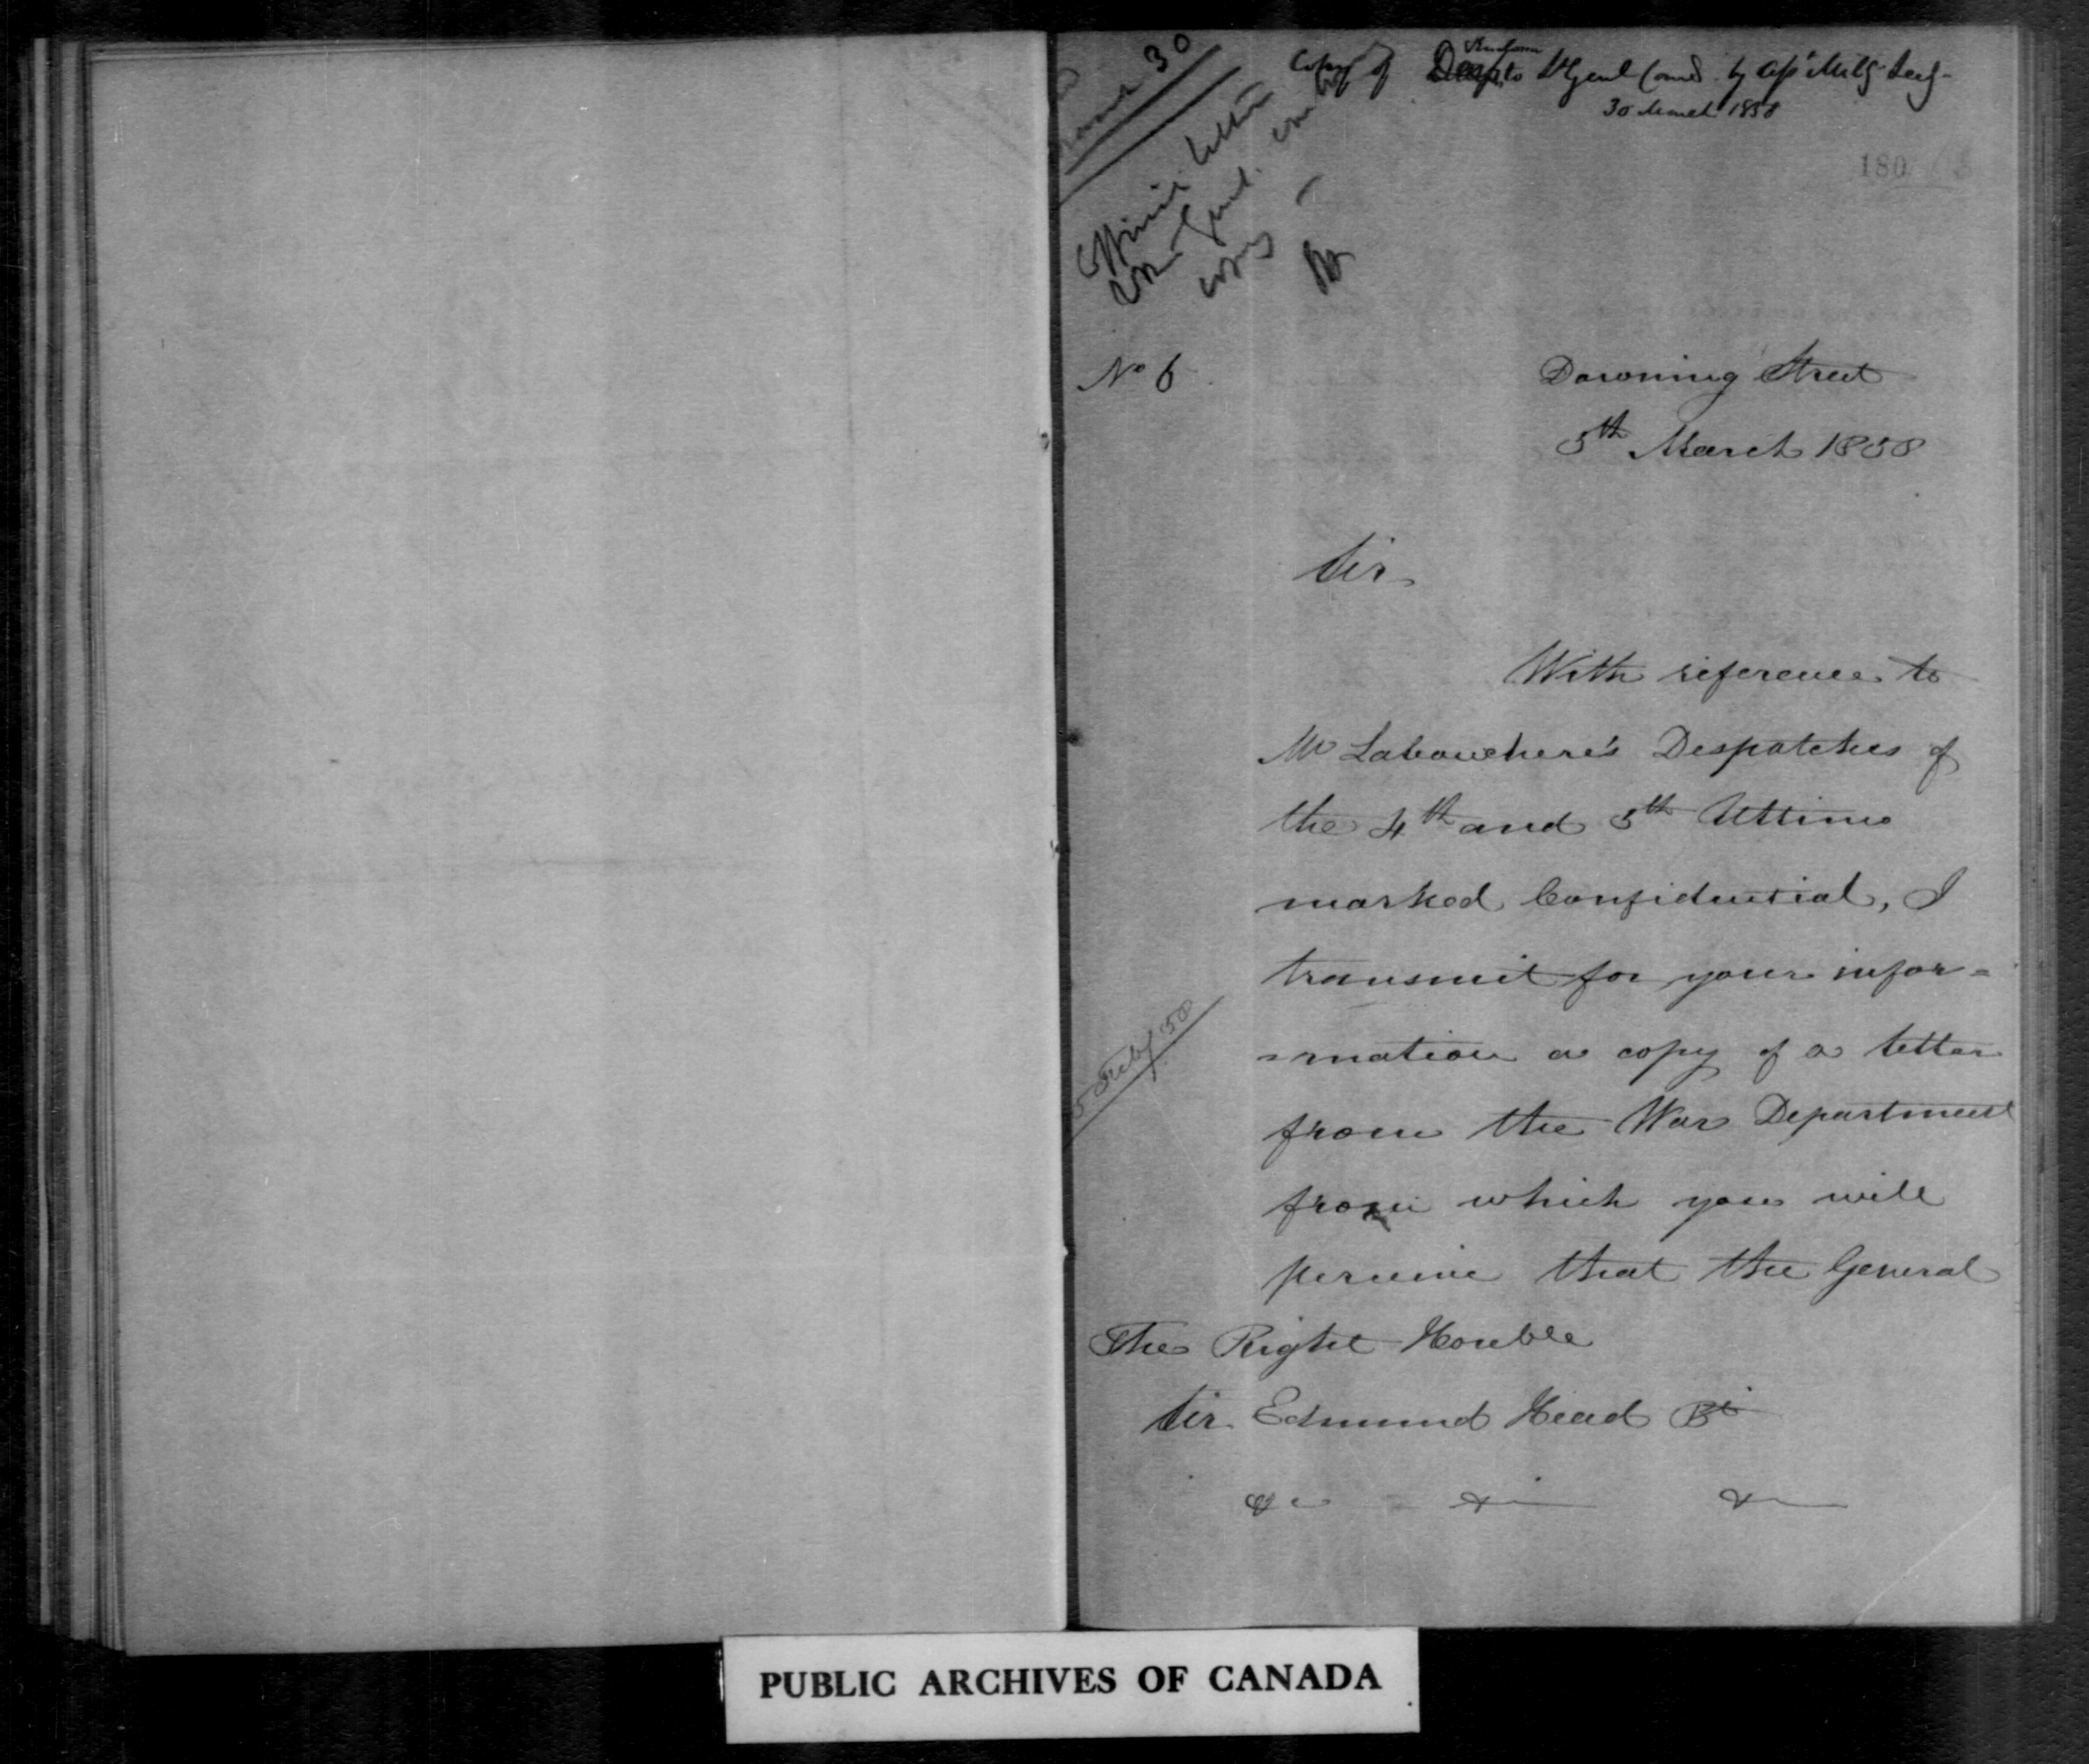 Copy of Enclosure to Lt Genl Comd. by Asst Mily Secy
30 March 1858
March 30
Official letter
Genl.
copies
180
No 6
Downing Street
5th March 1858
Sir
With reference to
Mr Labouchere's Despatches of
the 4th and 5th Ultimo
marked Confidential, I
transmit for your infor=
=mation a copy of a letter
5 Feby 58
from the War Department
from which you will
perceive that the General
The Right Honble
Sir Edmund Head Bt
&c &c &c
PUBLIC ARCHIVES OF CANADA